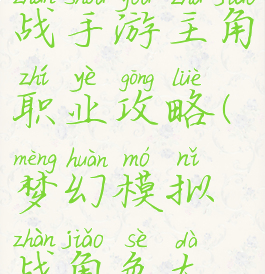 zhàn shǒu yóu zhǔ jiǎo
战手游主角
zhí yè gōng lüè
职业攻略(
mèng huàn mó nǐ
梦幻模拟
zhàn jiǎo sè dà
战角色大